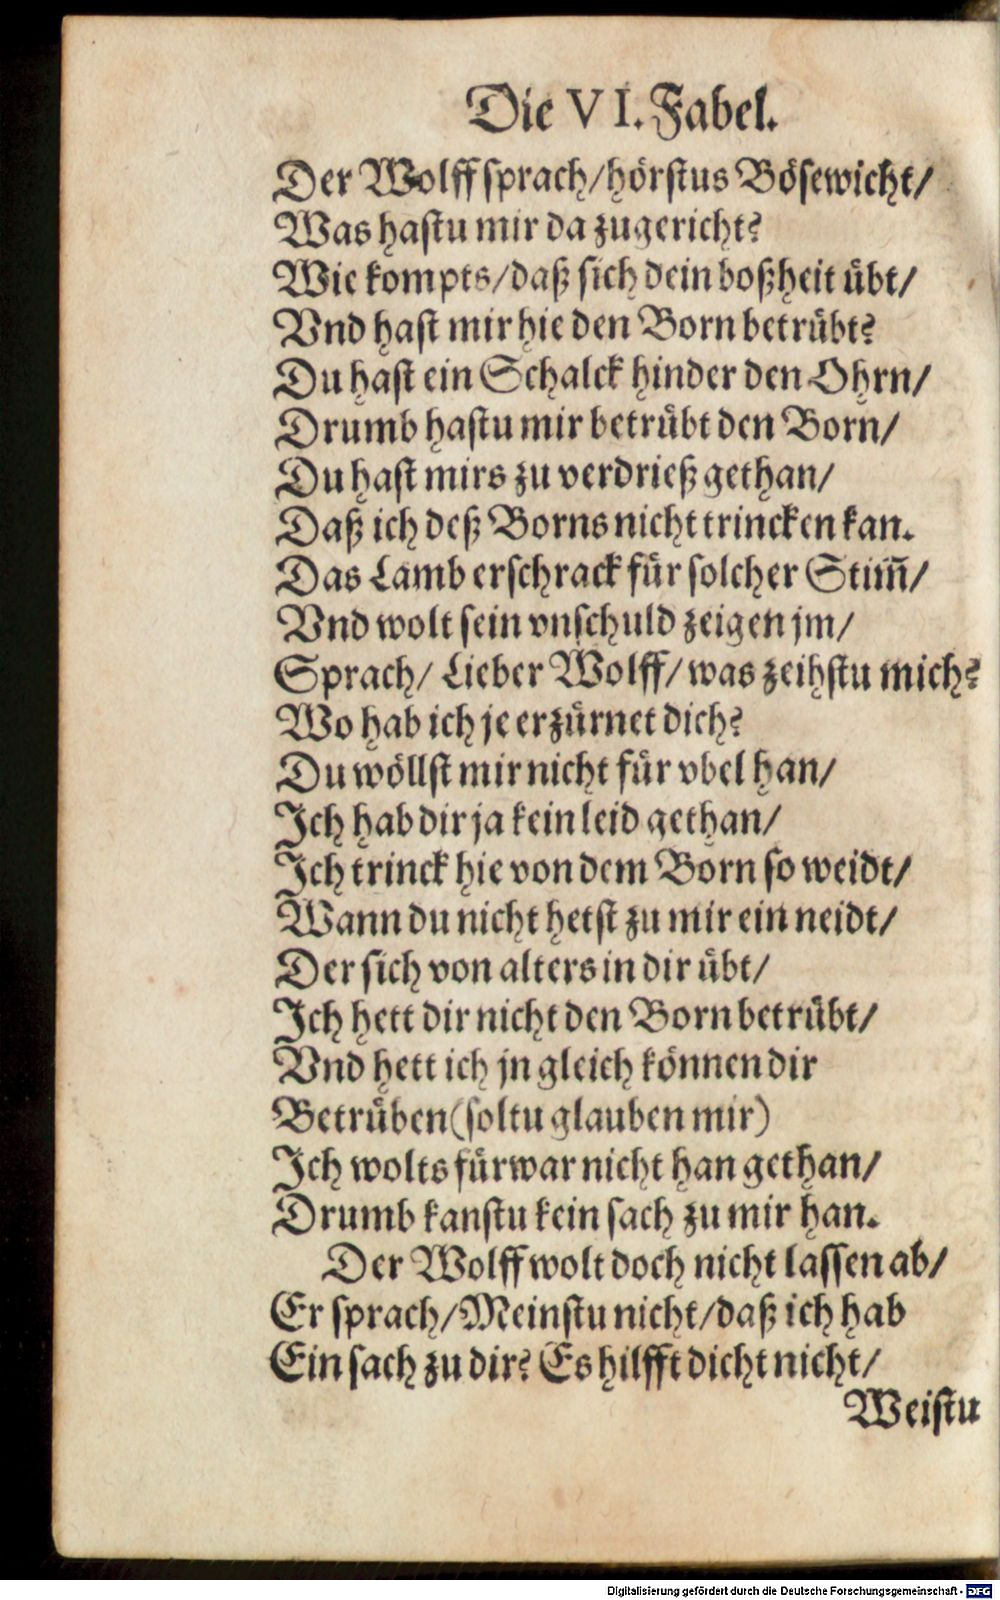 Die VI. Fabel.
Der Wolff sprach/hörstus Bösewicht/
Was hastu mir da zugericht?
Wie kompts/daß sich dein boßheit übt/
Vnd hast mir hie den Born betrübt?
Du hast ein Schalck hinder den Ohrn/
Drumb hastu mir betrübt den Born/
Du hast mirs zu verdrieß gethan/
Daß ich deß Borns nicht trincken kan.
Das Lamb erschrack für solcher Stim̃/
Vnd wolt sein vnschuld zeigen jm/
Sprach/ Lieber Wolff/ was zeihstu mich?
Wo hab ich je erzürnet dich?
Du wöllst mir nicht für vbel han/
Ich hab dir ja kein leid gethan/
Ich trinck hie von dem Born so weidt/
Wann du nicht hetst zu mir ein neidt/
Der sich von alters in dir übt/
Ich hett dir nicht den Born betrübt/
Vnd hett ich jn gleich können dir
Betrüben(soltu glauben mir)
Ich wolts fürwar nicht han gethan/
Drumb kanstu kein sach zu mir han.
Der Wolff wolt doch nicht lassen ab/
Er sprach/Meinstu nicht/daß ich hab
Ein sach zu dir? Es hilfft dicht nicht/
Weistu
Digitalisierung gefördert durch die Deutsche Forschungsgemeinschaft - DFG